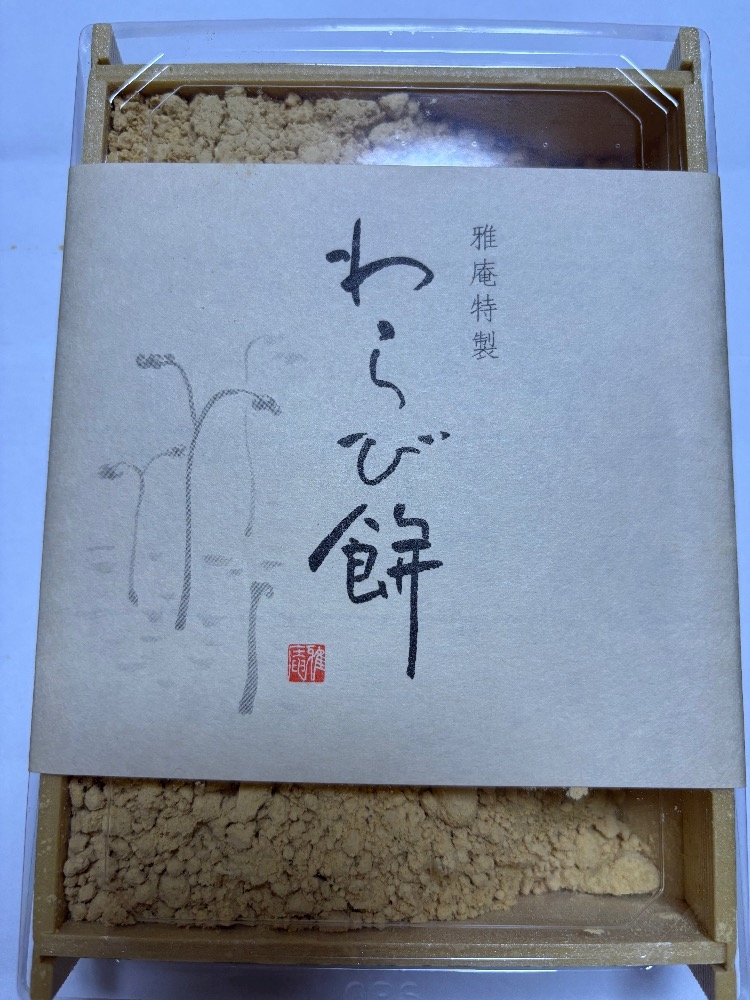 雅庵特製
わらび餅